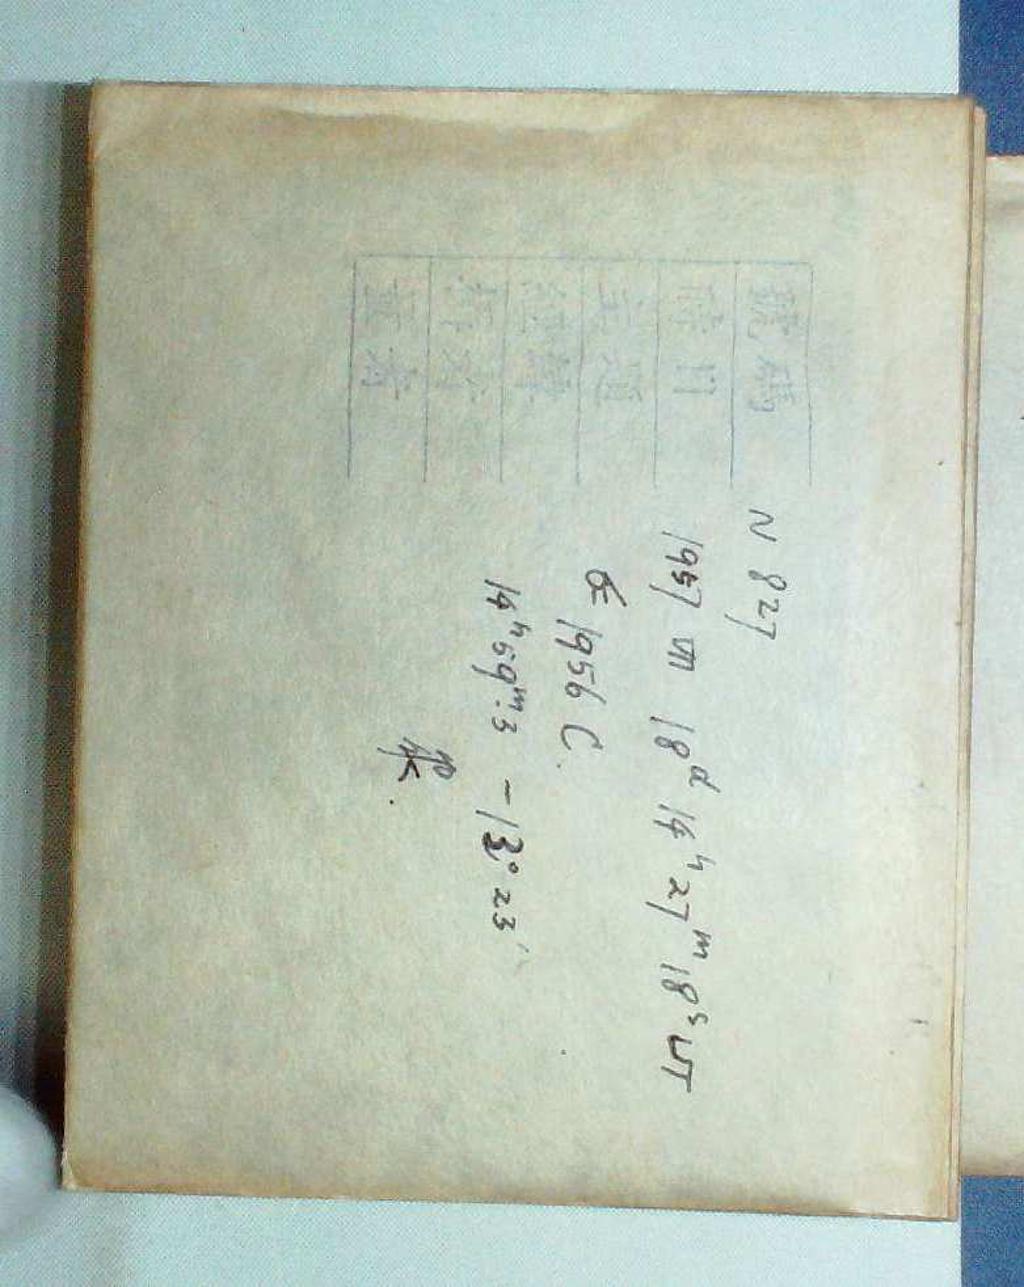 號碼 N 827
時日 1957 VII 18ᵈ 14ʰ 27ᵐ 18ˢ UT
主題 1956 C.
經緯 14ʰ59ᵐ.3 -13° 23'
者
者